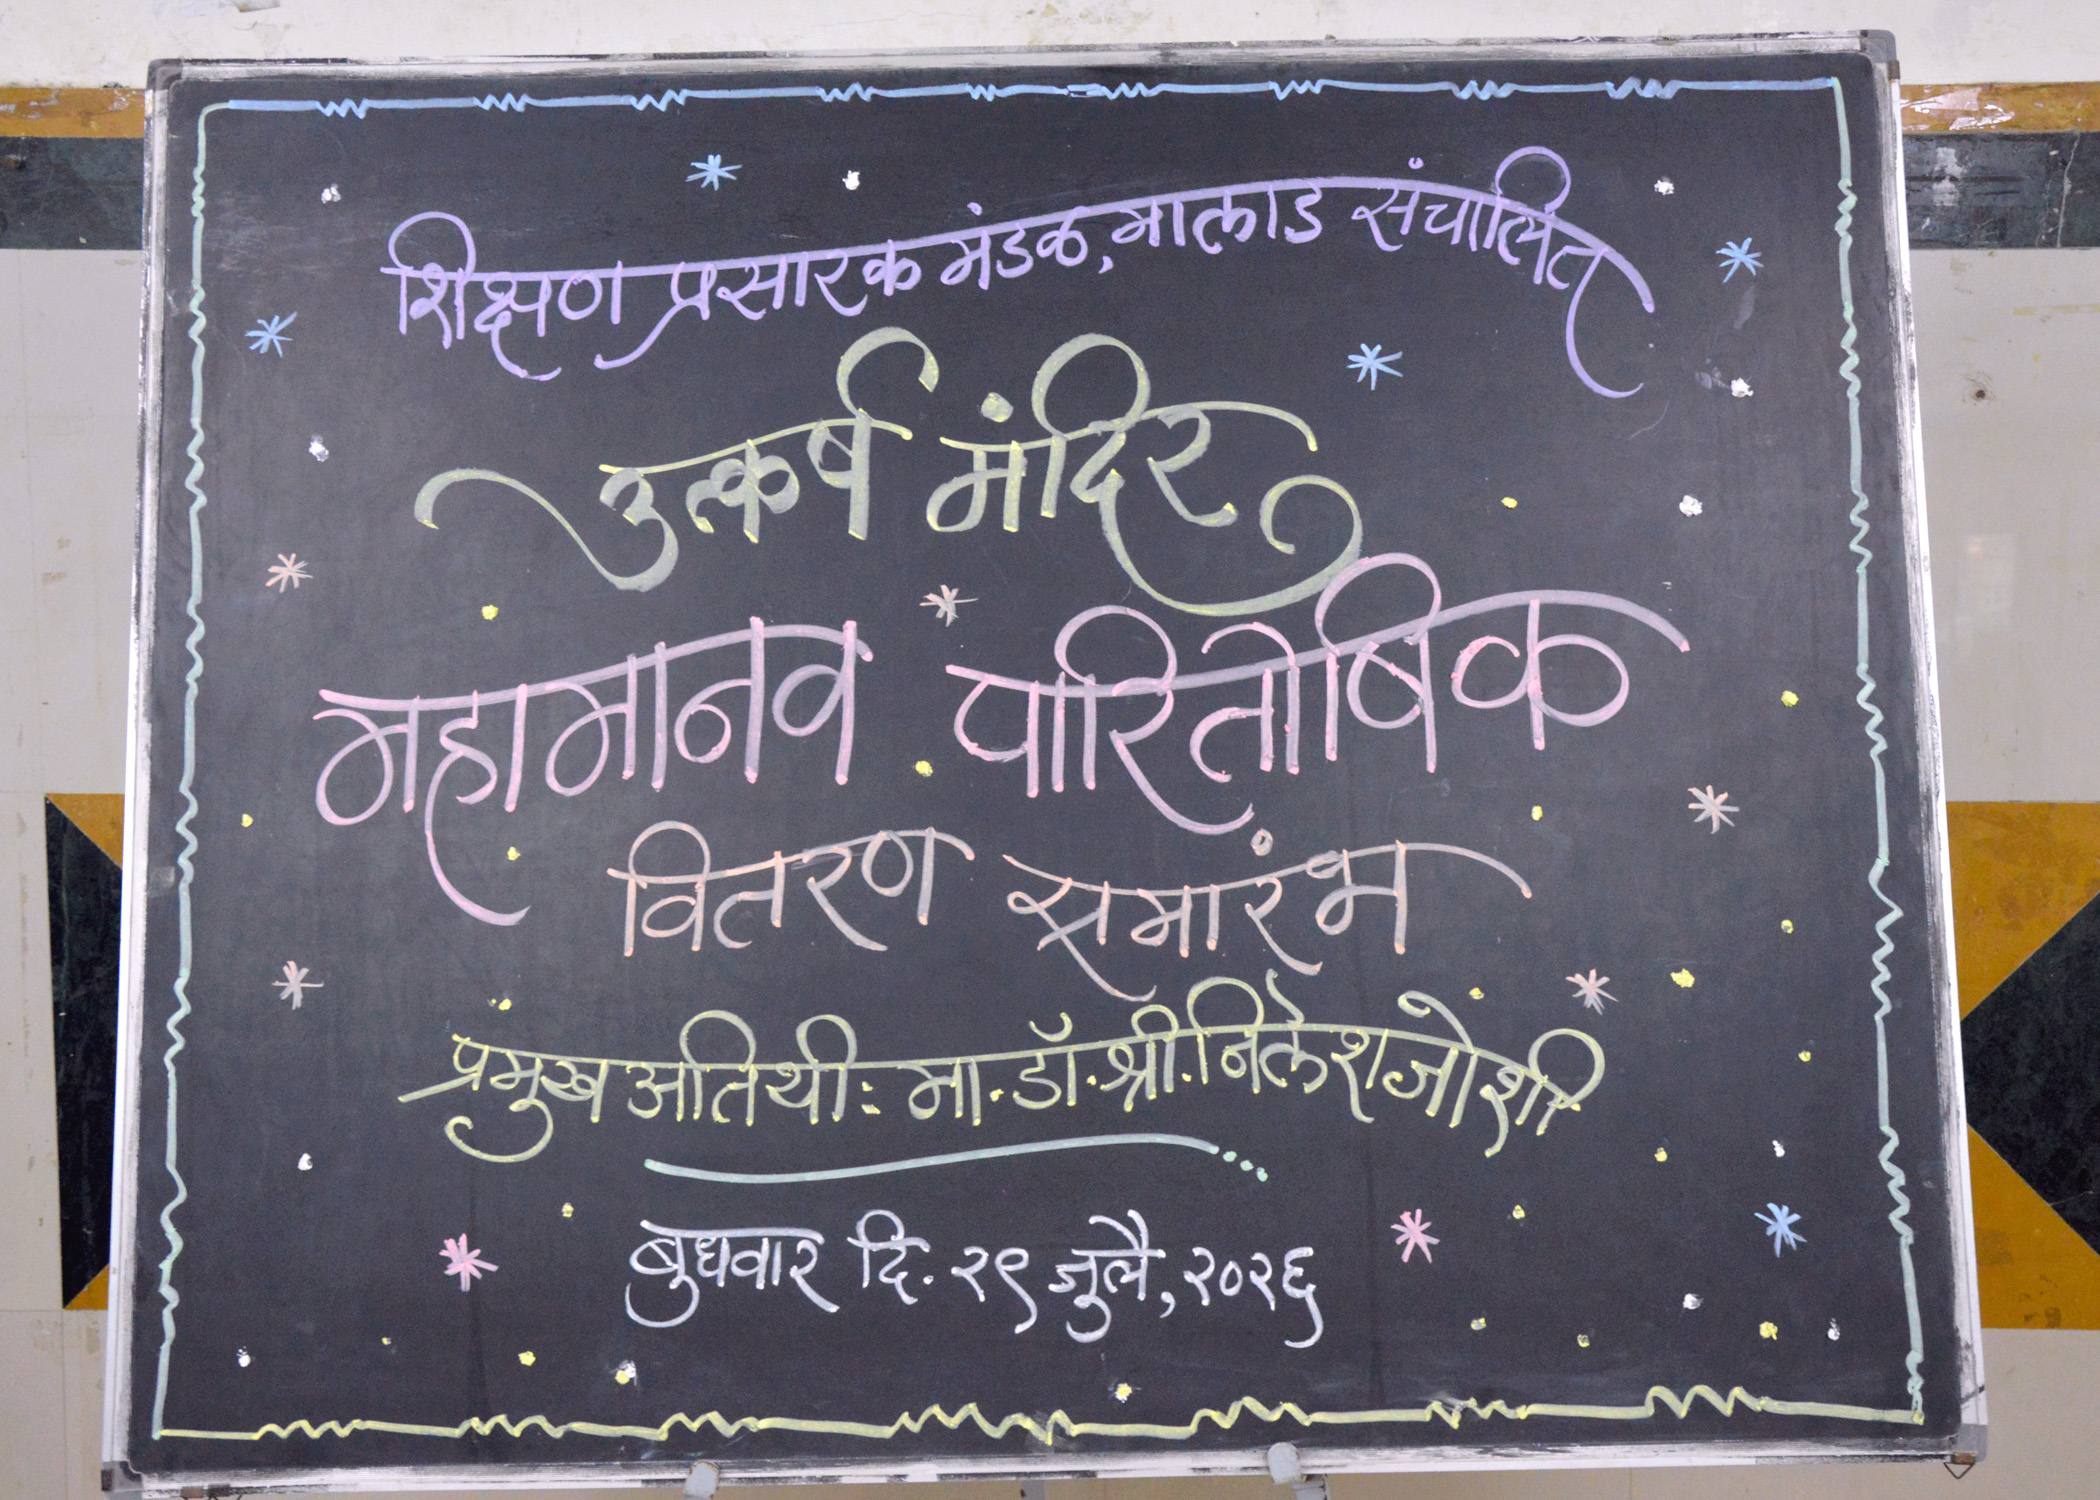 शिक्षण प्रसारक मंडळ, मालाड संचालित
उत्कर्ष मंदिर
महामानव पारितोषिक
वितरण समारंभ
प्रमुख अतिथी: मा. डॉ. श्री. निलेश जोशी
बुधवार दि. २९ जुलै, २०२६